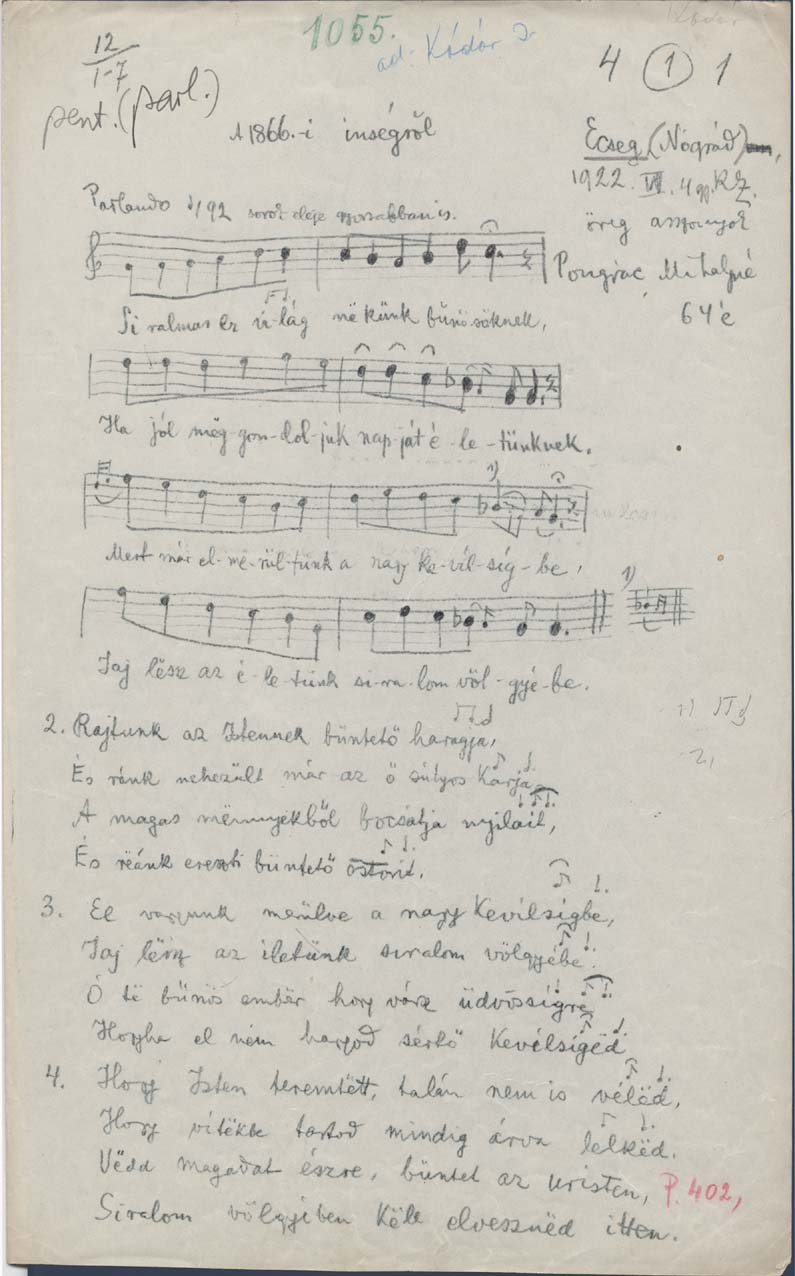 1055.
ad. Kádár
Kádár
12
1-7
pent. (parl.)
4 1 1
A 1866.-i inségről
Ecseg (Nógrád),
1922. VI. 4 gy. KZ.
öreg asszonyok
Pongrác Mihályné
64 é
Parlando 92 sorok eleje gyorsabban is.
Si ralmas ez vi-lág nékünk bűnö-söknek,
Ha jól mëg-gon-dol-juk nap-ját é-le-tünknek.
1)
Mert már el-mé-rül-tünk a nagy ke-víl-síg-be,
1)
Jaj lësz az é-le-tünk si-ra-lom völ-gyé-be.
2. Rajtunk az Istennek büntető haragja,
És ránk nehezült már az ő súlyos karja
A magas mënnyekből bocsátja nyilait,
És rëánk ereszti büntető ostorit.
3. El vagyunk merülve a nagy kevílsígbe,
Jaj lësz az íletünk siralom völgyébe.
Ó të bűnös embër hogy vársz üdvössígre
Hogyha el nem hagyod sértő kevélsígëd
4. Hogy Isten teremtëtt, talán nem is vélëd,
Hogy vítëkbe tartod mindig árva lelkëd.
Vëdd magadat észre, büntet az uristen,
P. 402,
Siralom völgyiben këll elvesznëd itten.